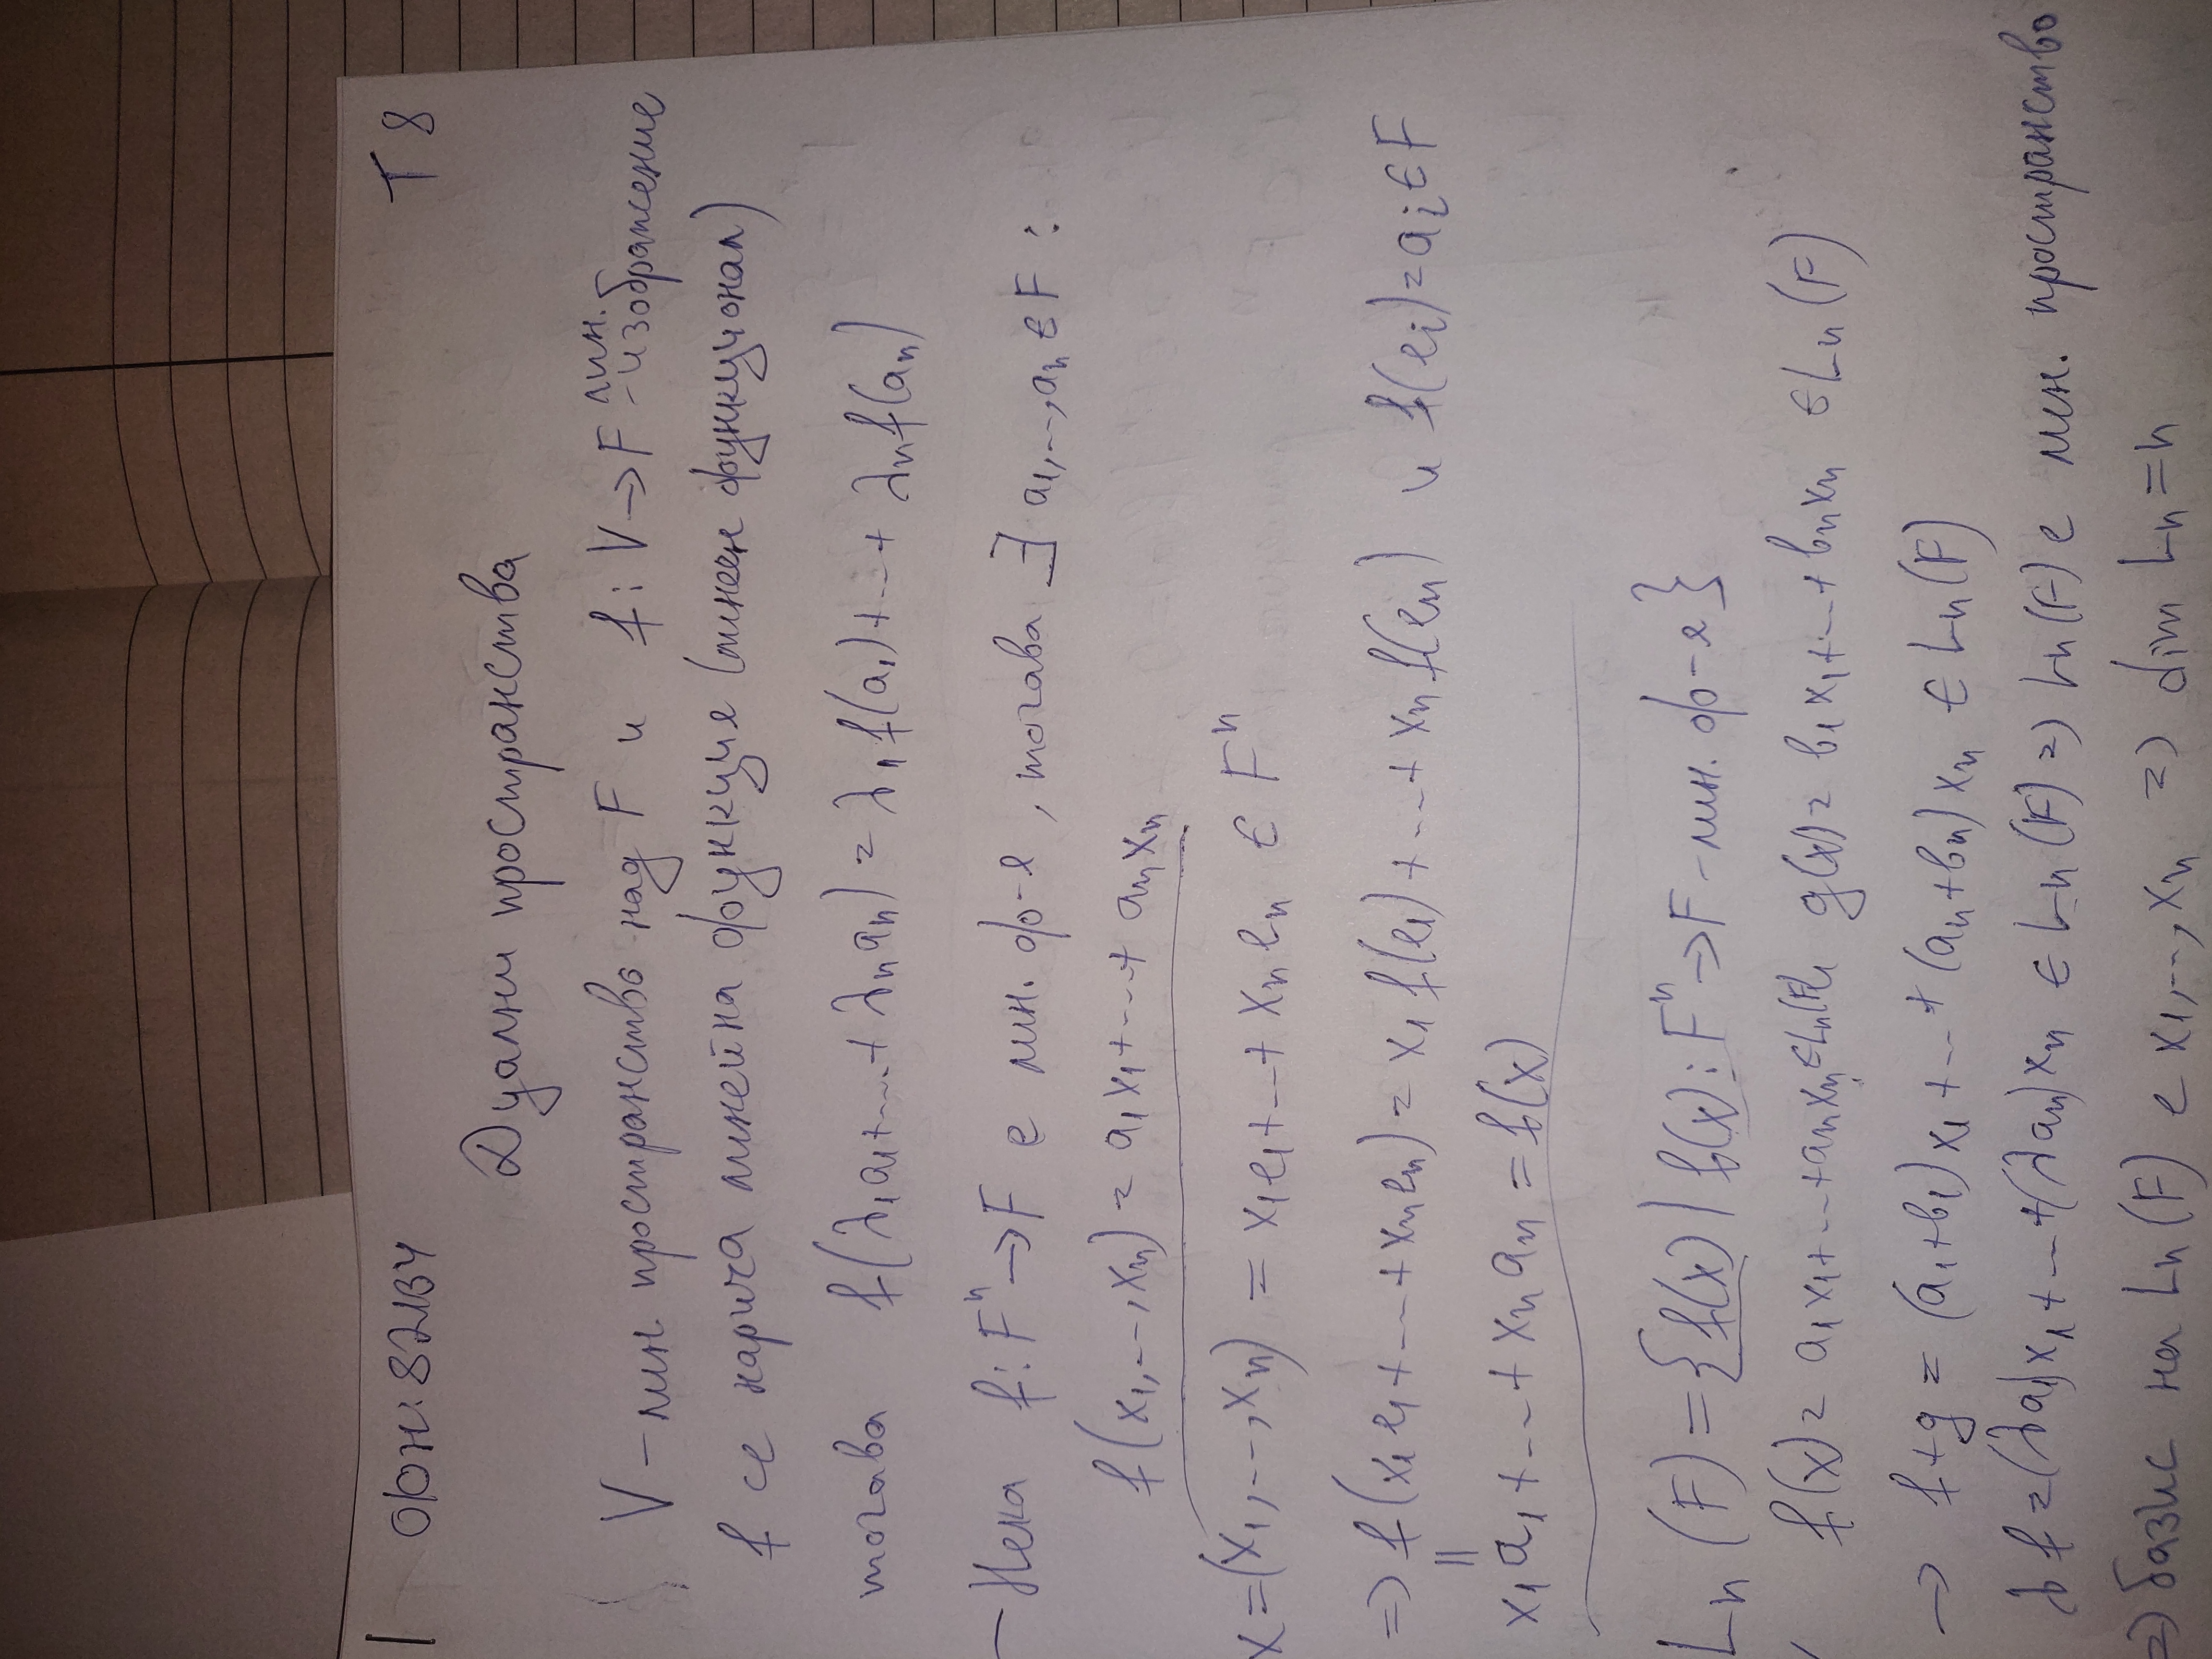 1 ФН: 82134 T 8
Дуални пространства
V – лин. пространство над F и f: V → F – лин. изображение
f се нарича линейна функция (линеен функционал)
тогава f(λ₁a₁+...+λₙaₙ) = λ₁f(a₁)+...+λₙf(aₙ)
– Нека f: Fⁿ → F е лин. ф-я, тогава ∃ a₁,...,aₙ ∈ F :
f(x₁,...,xₙ) = a₁x₁+...+aₙxₙ
x = (x₁,...,xₙ) = x₁e₁+...+xₙeₙ ∈ Fⁿ
=> f(x₁e₁+...+xₙeₙ) = x₁f(e₁)+...+xₙf(eₙ) и f(eᵢ) = aᵢ ∈ F
||
x₁a₁+...+xₙaₙ = f(x)
Lₙ(F) = {f(x) | f(x): Fⁿ → F – лин. ф-я}
f(x) = a₁x₁+...+aₙxₙ ∈ Lₙ(F), g(x) = b₁x₁+...+bₙxₙ ∈ Lₙ(F)
→ f+g = (a₁+b₁)x₁+...+(aₙ+bₙ)xₙ ∈ Lₙ(F)
λf = (λa₁)x₁+...+(λaₙ)xₙ ∈ Lₙ(F) => Lₙ(F) е лин. пространство
=> базис на Lₙ(F) е x₁,...,xₙ => dim Lₙ = n